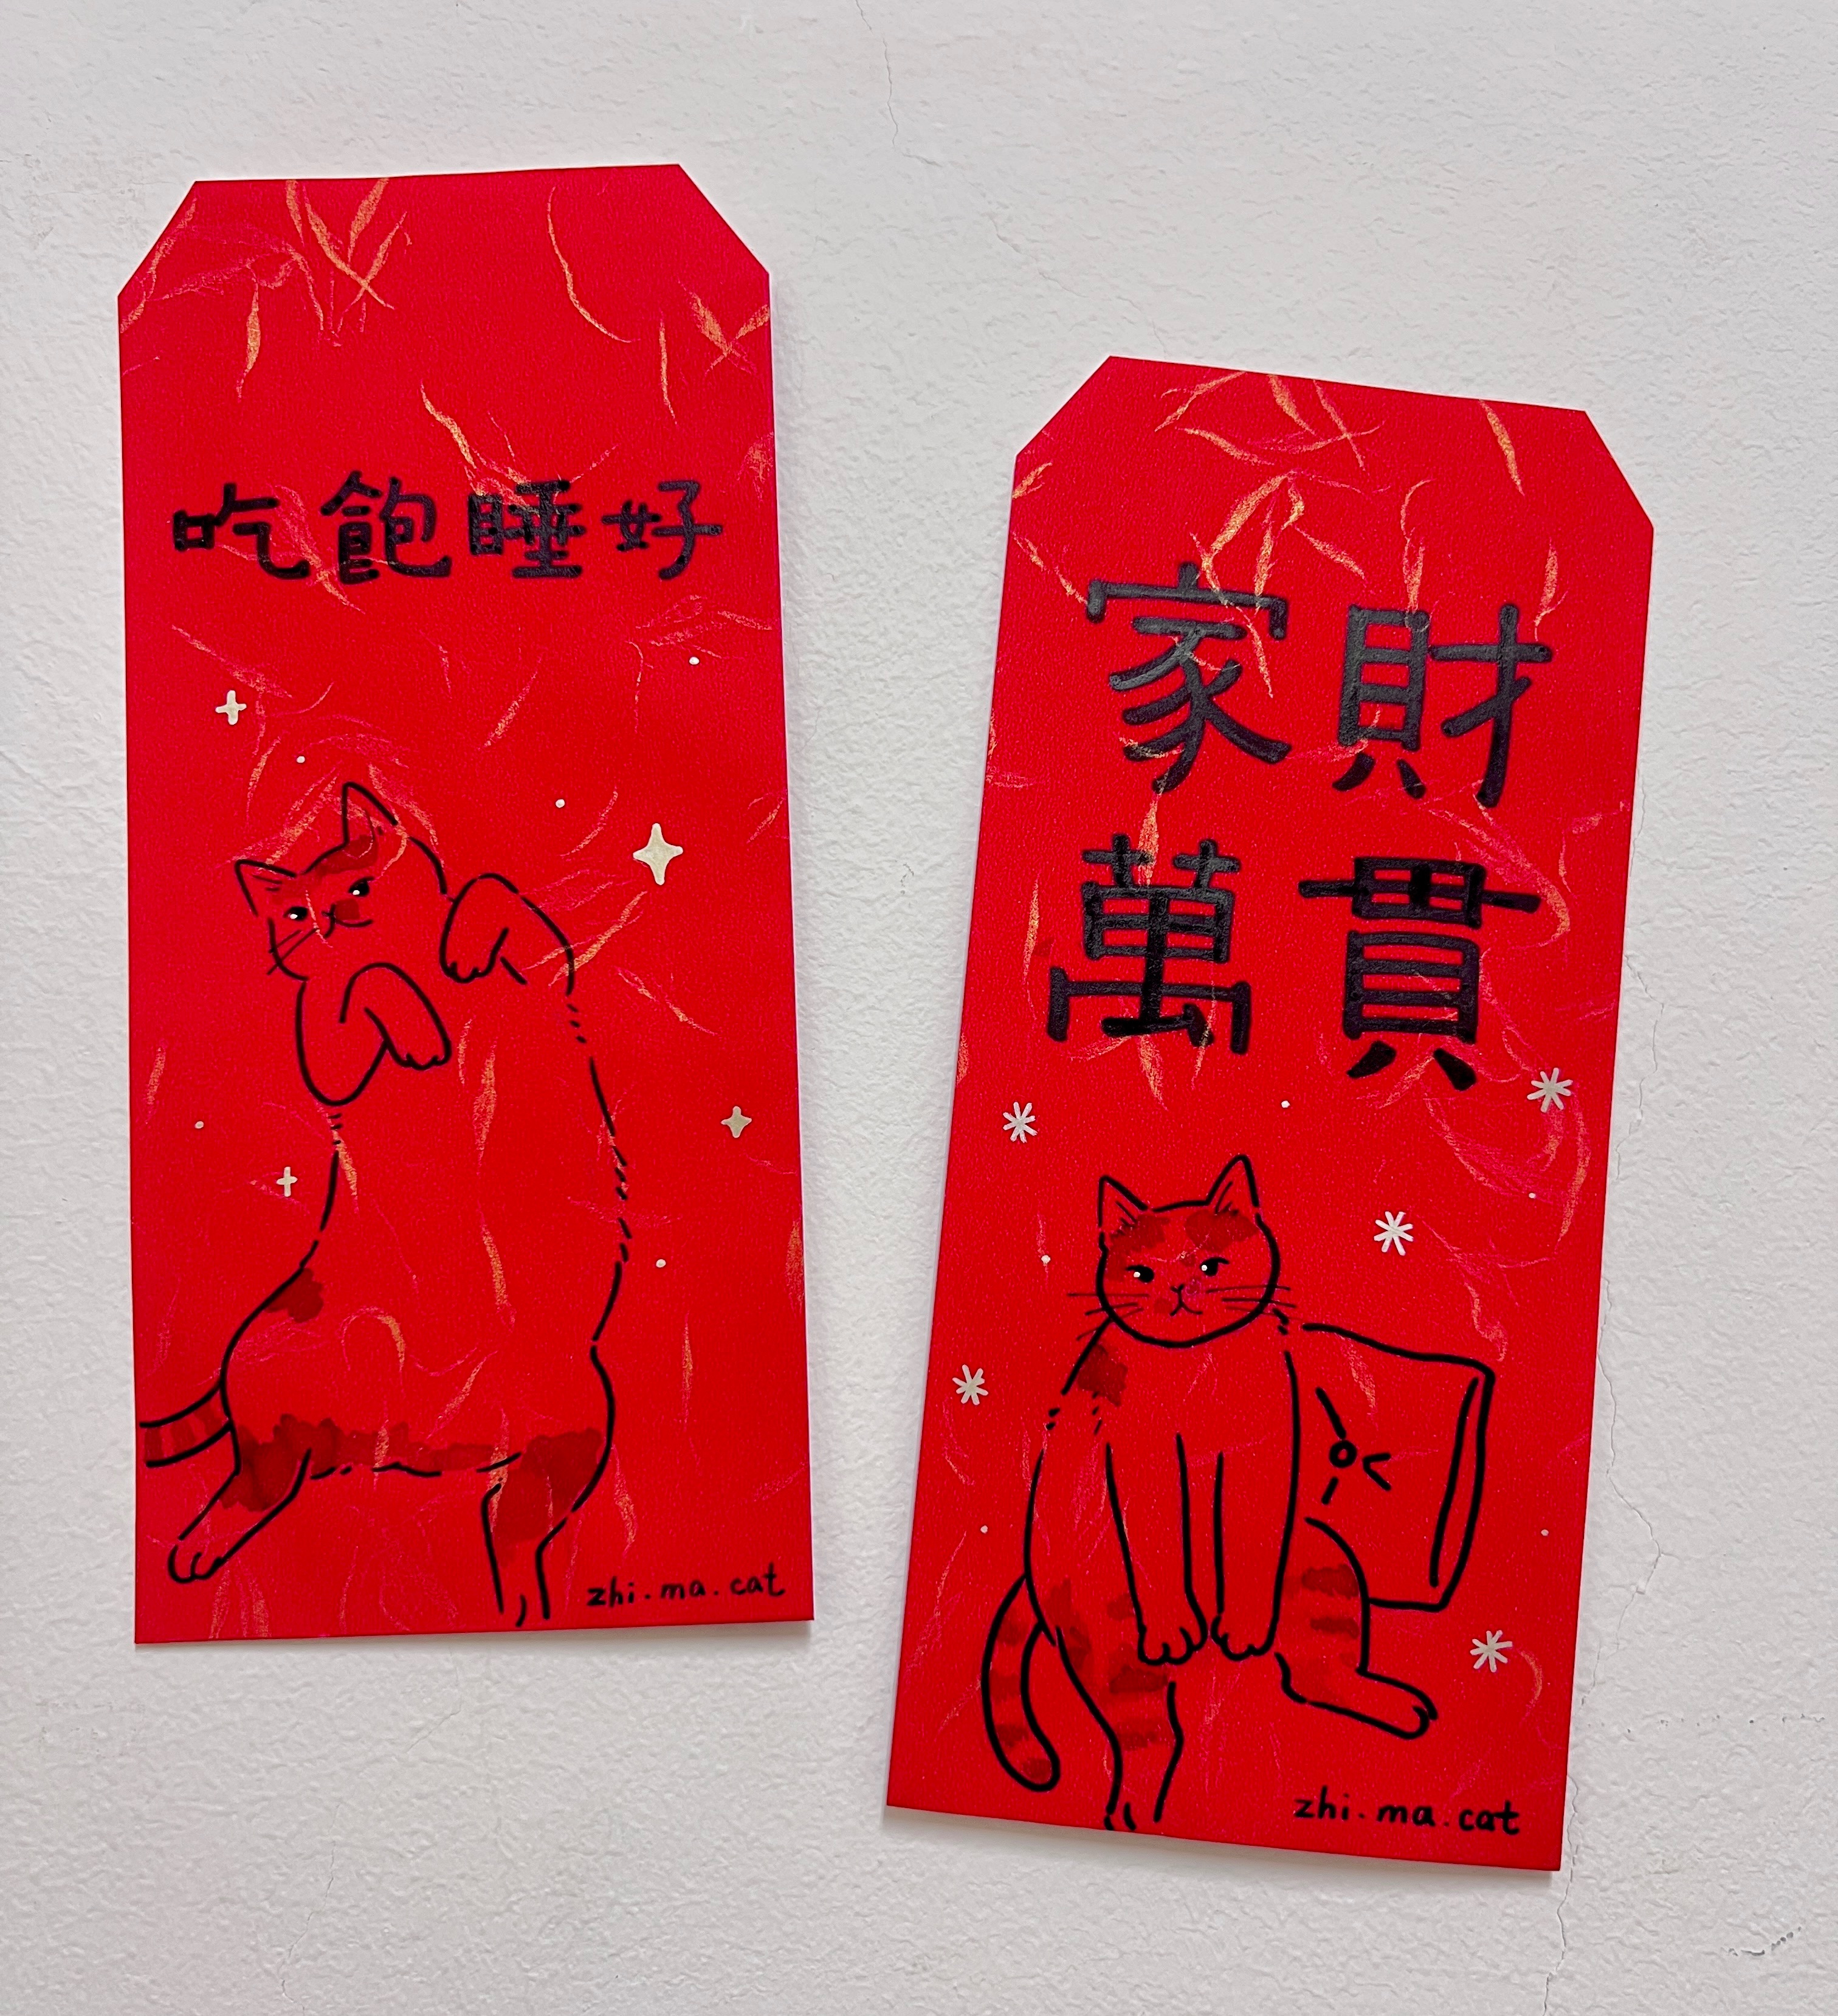 吃飽睡好
zhi.ma.cat
家財
萬貫
zhi.ma.cat